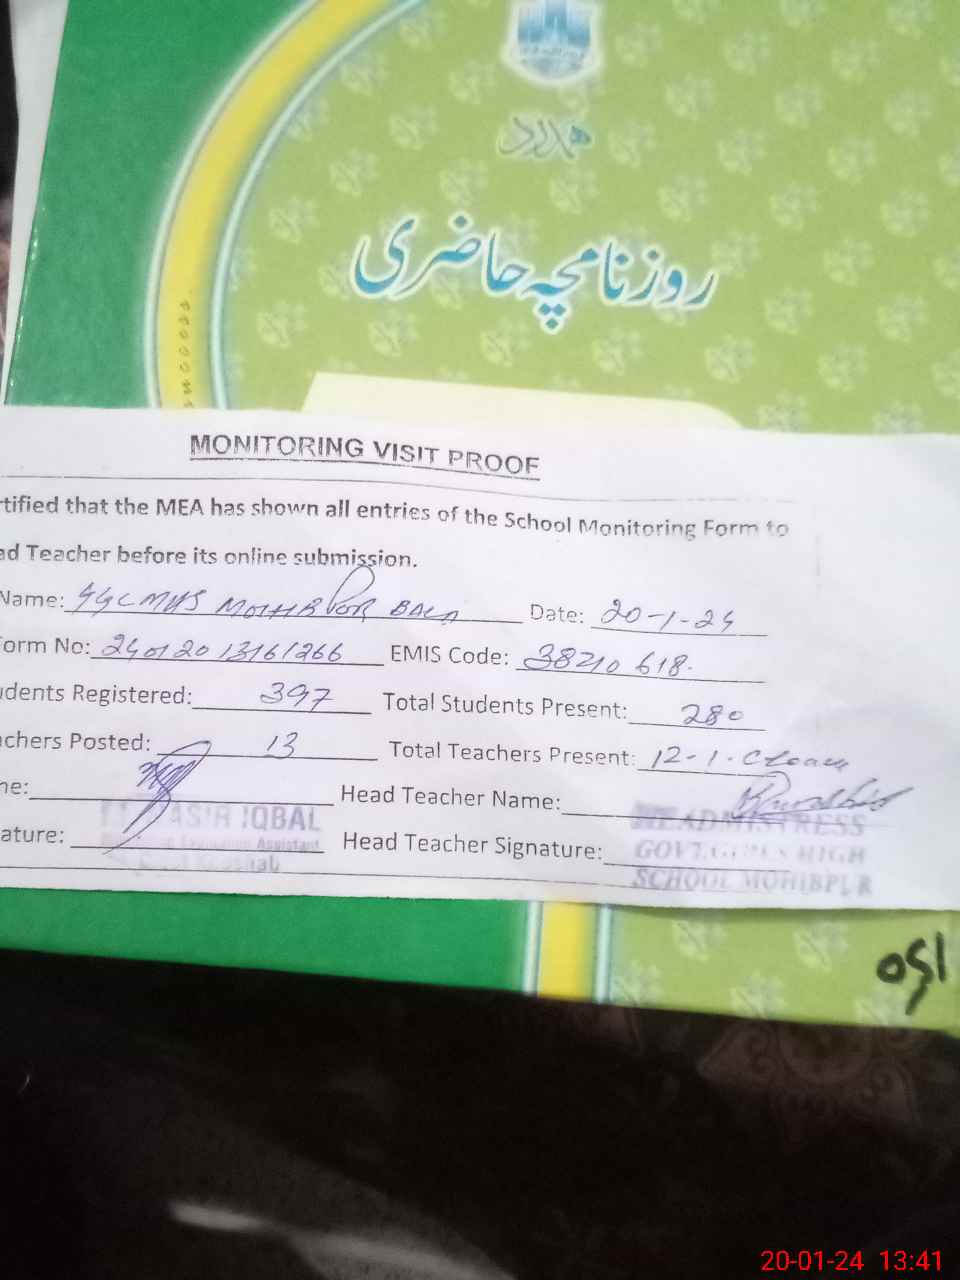 ہمدرد
روزنامچہ حاضری
MONITORING VISIT PROOF
tified that the MEA has shown all entries of the School Monitoring Form to
ad Teacher before its online submission.
Name: GGCMHS MOHIB POR BALA Date: 20-1-24
orm No: 24012013161266 EMIS Code: 38210618.
dents Registered: 397 Total Students Present: 280
chers Posted: 13 Total Teachers Present: 12-1.
me: Head Teacher Name:
ASIR IQBAL HEADMISTRESS
ature: Assistant Head Teacher Signature: GOVT. GIRLS HIGH
SCHOOL MOHIBPUR
20-01-24 13:41